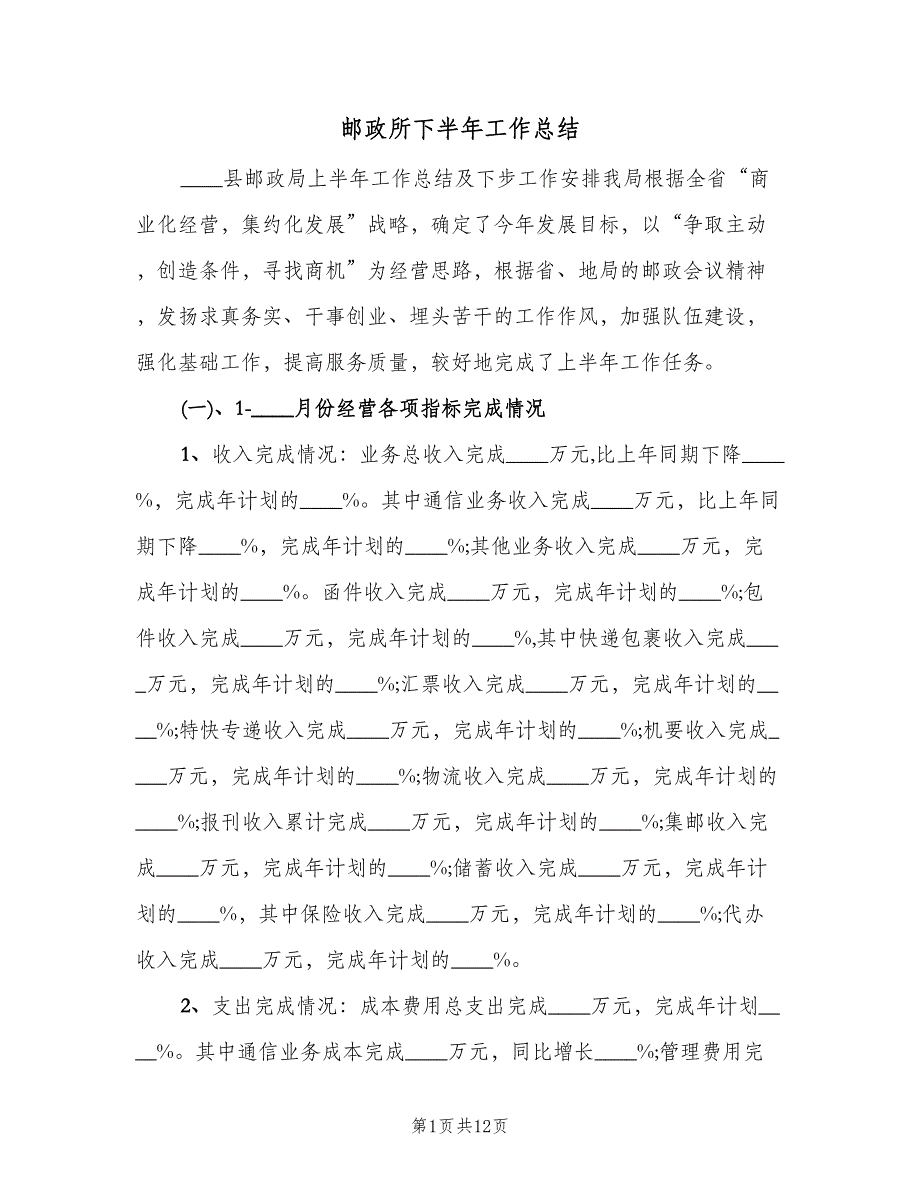 邮政所下半年工作总结
____县邮政局上半年工作总结及下步工作安排我局根据全省“商
业化经营，集约化发展”战略，确定了今年发展目标，以“争取主动
，创造条件，寻找商机”为经营思路，根据省、地局的邮政会议精神
，发扬求真务实、干事创业、埋头苦干的工作作风，加强队伍建设，
强化基础工作，提高服务质量，较好地完成了上半年工作任务。
(一)、1-____月份经营各项指标完成情况
1、收入完成情况：业务总收入完成____万元,比上年同期下降____
%，完成年计划的____%。其中通信业务收入完成____万元，比上年同
期下降____%，完成年计划的____%;其他业务收入完成____万元，完
成年计划的____%。函件收入完成____万元，完成年计划的____%;包
件收入完成____万元，完成年计划的____%,其中快递包裹收入完成___
_万元，完成年计划的____%;汇票收入完成____万元，完成年计划的__
__%;特快专递收入完成____万元，完成年计划的____%;机要收入完成_
___万元，完成年计划的____%;物流收入完成____万元，完成年计划的
____%;报刊收入累计完成____万元，完成年计划的____%;集邮收入完
成____万元，完成年计划的____%;储蓄收入完成____万元，完成年计
划的____%，其中保险收入完成____万元，完成年计划的____%;代办
收入完成____万元，完成年计划的____%。
2、支出完成情况：成本费用总支出完成____万元，完成年计划__
__%。其中通信业务成本完成____万元，同比增长____%;管理费用完
第1页共12页